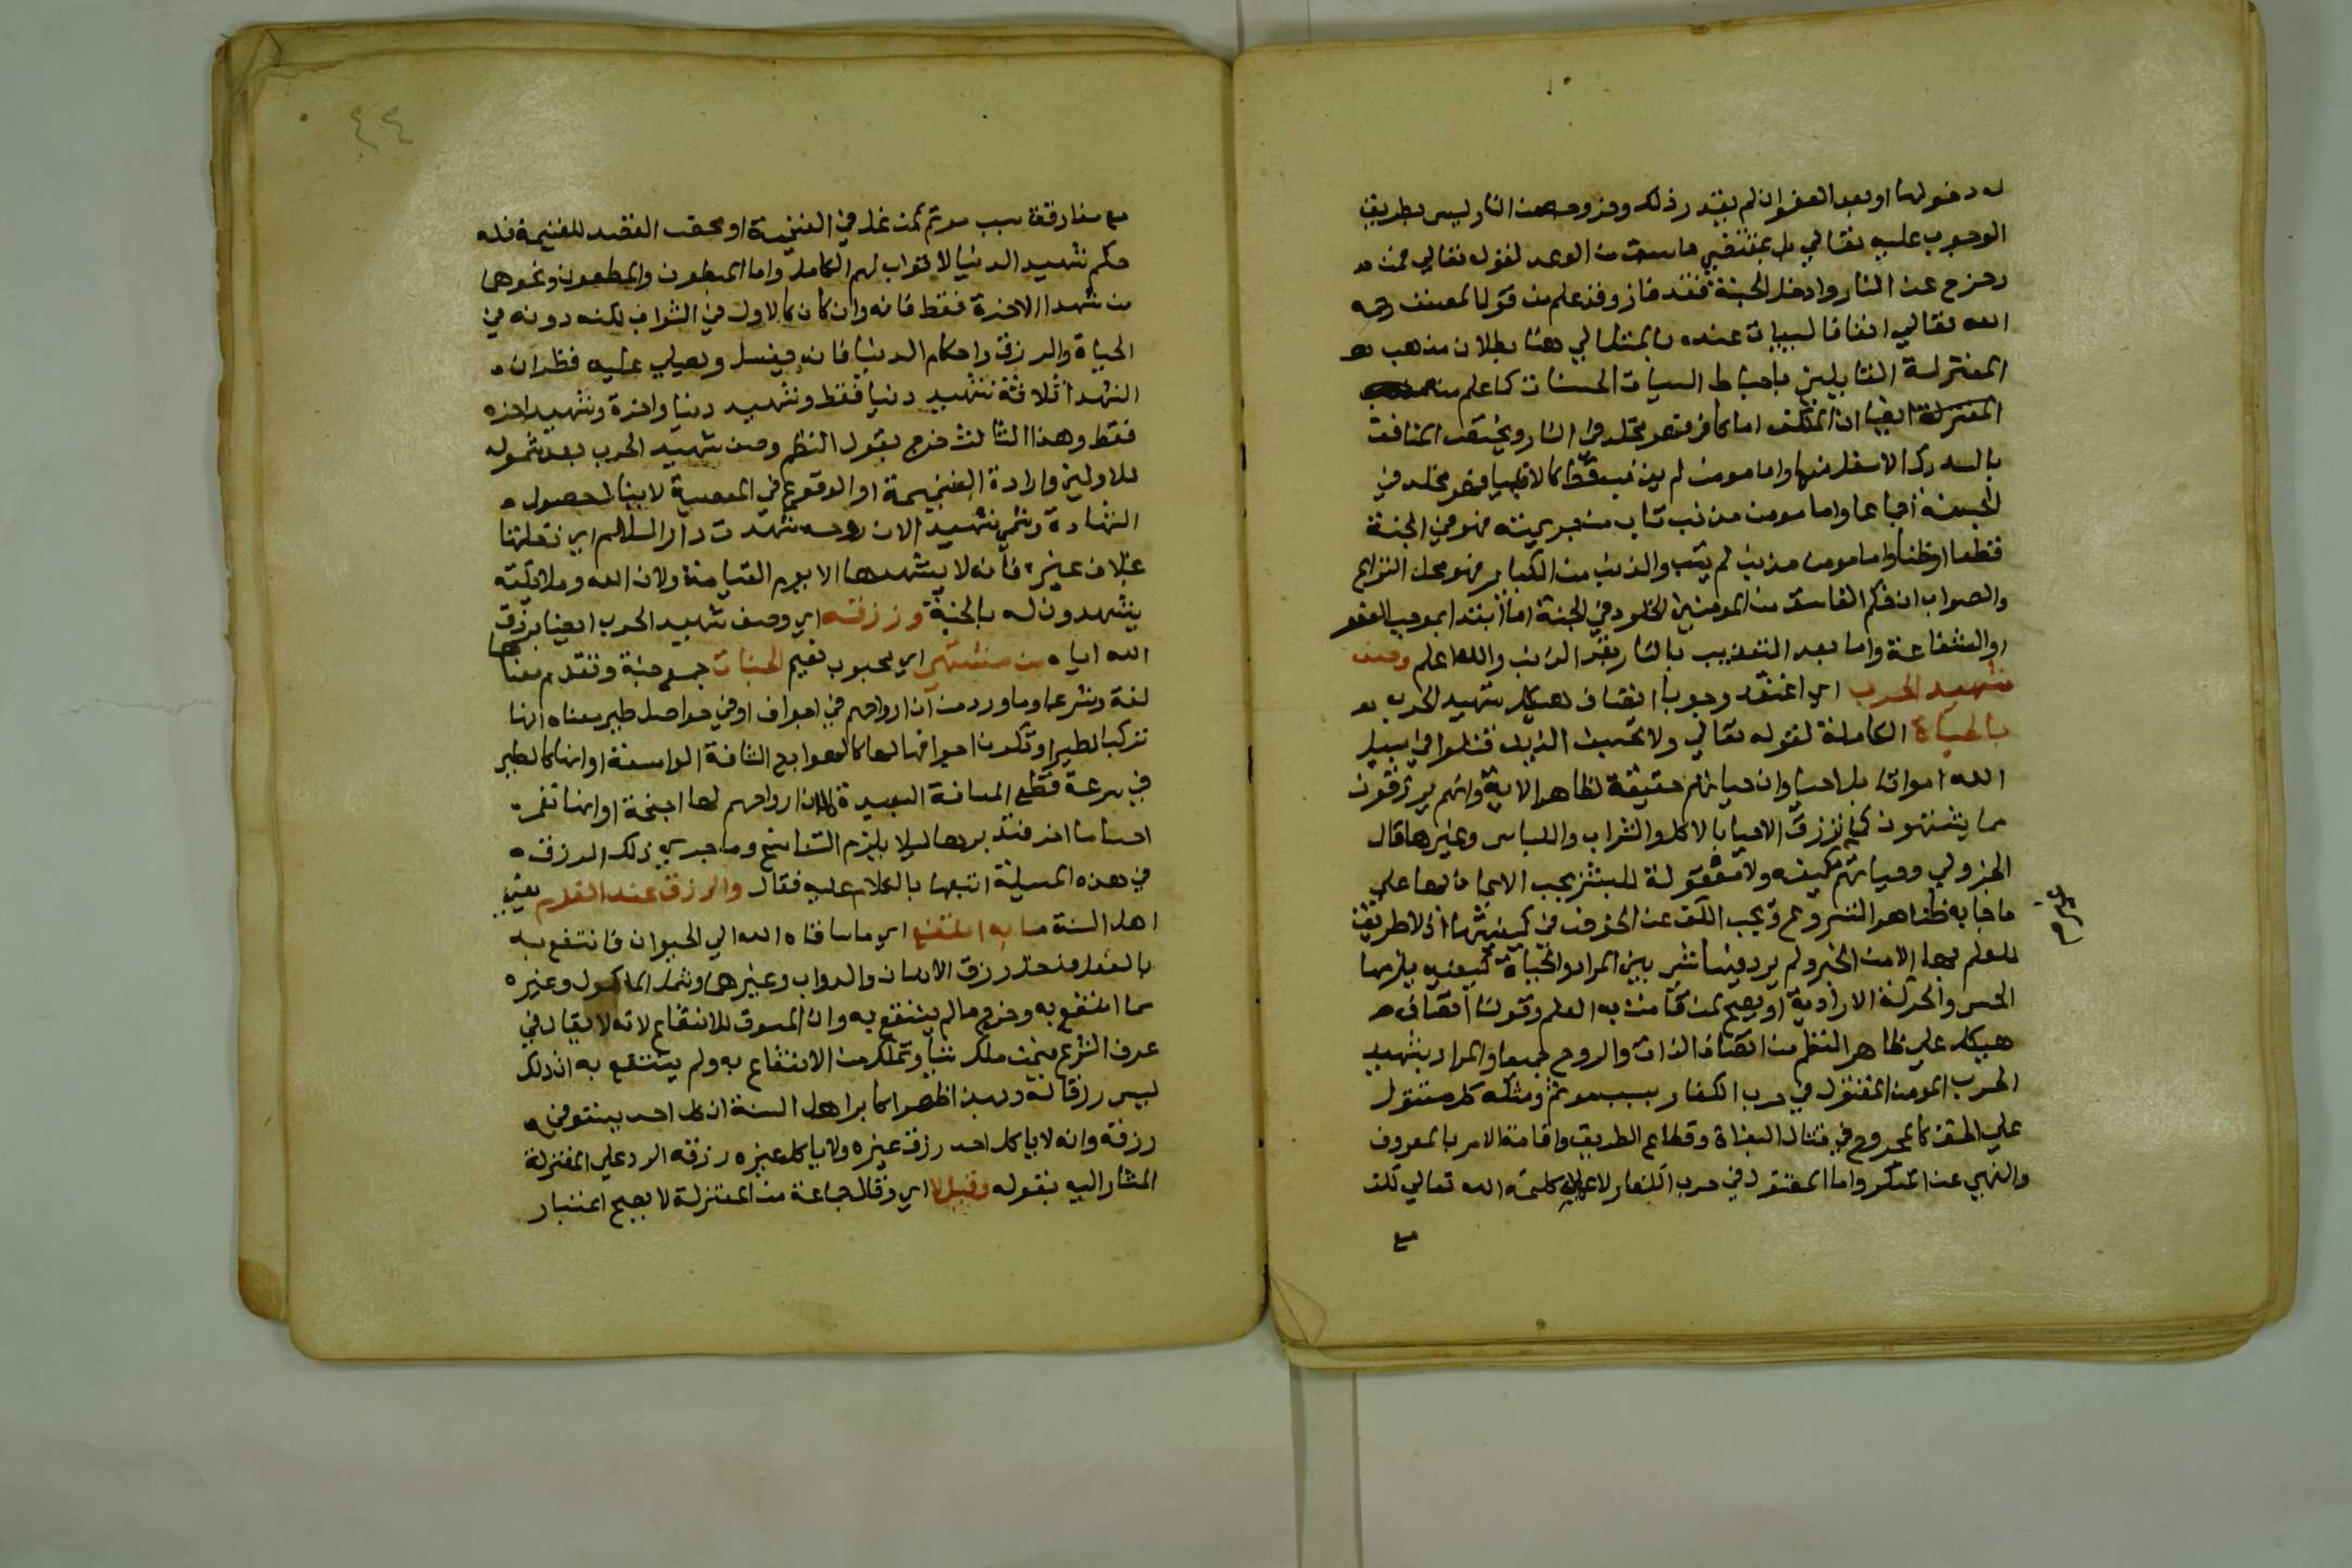 له دخولها او بعد العفو ان لم يقدر ذلك وخروجه من النار ليس بطريق
الوجوب عليه تعالي بل بمقتضي ما سبق من الوعد لقوله تعالي فمن
زحزح عن النار وادخل الجنة فقد فاز وقد علم من قول المصنف رحمه
الله تعالي انفا فالسيات عنده بالمثل الي هنا بطلان مذهب
المعتزلة القايلين باحباط السيات الحسنات كما علم منه
المعتزلة ايضا ان المكلف اما كافر فهو مخلد في النار ويختص المنافق
بالدرك الاسفل منها واما مومن لم يذنب قط كالانبيا فهو مخلد في
الجنة اجماعا واما مومن مذنب تاب من جريمته فهو في الجنة
قطعا او ظنا واما مومن مذنب لم يتب والذنب من الكباير فهو محل النزاع
والصواب ان حكم الفاسق من المومنين الخلود في الجنة اما ابتدا بموجب العفو
او الشفاعة واما بعد التعذيب بالنار بقدر الذنب والله اعلم وصف
شهيد الحرب اي اعتقد وجوبا اتصاف هيكل شهيد الحرب
بالحياة الكاملة لقوله تعالي ولا تحسبن الذين قتلوا في سبيل
الله امواتا بل احيا وان حياتهم حقيقة لظاهر الاية وانهم يرزقون
مما يشتهون كما ترزق الاحيا بالاكل والشراب واللباس وغيرها قال
الجزولي وحياتهم غير مكيفة ولا معقولة للبشر يجب الايمان بها علي
ما جا به ظاهر الشرع ويجب الكف عن الخوض في كيفيتها اذ لا طريق
للعلم بها الا من الخبر ولم يرد فيها شي يبين المراد والحياة كيفية يلزمها
الحس والحركة الارادية او يصح لمن قامت به العلم وقولنا اتصاف
هيكل علي ظاهر النظم من اتصاف الذات والروح جميعا والمراد بشهيد
الحرب المومن المقتول في حرب الكفار بسبب موتم ومثله كل مقتول
علي الحق كالمجروح في قتال البغاة وقطاع الطريق واقامة الامر بالمعروف
والنهي عن المنكر واما المقتول في حرب الكفار لا علاء كلمة الله تعالي لكن
مع
مع مفارقة سبب موتم كمن غل في الغنيمة او محض القصد للغنيمة فله
حكم شهيد الدنيا لا ثواب لهم الكامل واما المبطون والمطعون ونحوهما
من شهدا الاخرة فقط فانه وان كان كالاول في الثواب لكنه دونه في
الحياة والرزق واحكام الدنيا فانه يغسل ويصلي عليه فظهر ان
الشهدا ثلاثة شهيد دنيا فقط وشهيد دنيا واخرة وشهيد اخره
فقط وهذا الثالث خرج بقول الناظم وصف شهيد الحرب بعد شموله
للاولين وارادة الغنيمة او الوقوع في المعصية لا ينافي حصول
الشهادة وسمي شهيد الان روحه شهدت دار السلام اي نقلتها
بخلاف غيره فانه لا يشهدها الا يوم القيامة ولان الله وملايكته
يشهدون له بالجنة ورزقه اي وصف شهيد الحرب ايضا برزق
الله اياه من مشتهي اي محبوب نعيم الجنات جمع جنة وتقدم معناها
لغة وشرعا وما ورد من ان ارواحهم في اجواف او في حواصل طير معناه انها
تركب الطير او تكون اجوافها لها كالهوادج الشافة الواسعة او انها كالطير
في سرعة قطع المسافة البعيدة لان ارواحهم لها اجنحة او انها تعمر
اجساما اخر فتدبرها ليلا يلزم التناسخ وما جري ذلك الرزق
في هذه المسيلة اتبعها بالكلام عليه فقال والرزق عند القوم يعني
اهل السنة ما به انتفع اي ما ساقه الله الي الحيوان فانتفع به
بالفعل فدخل رزق الانسان والدواب وغيرها وشمل الماكول وغيره
مما انتفع به وخرج ما لم ينتفع به وان المسوق للانتفاع لانه لا يقال في
عرف الشرع فيمن ملك شيأ وتمكن من الانتفاع به ولم ينتفع به ان ذلك
ليس رزقا له وبهذا ظهر اكابر اهل السنة ان كل احد يستوفي
رزقه وانه لا ياكل احد رزق غيره ولا ياكل غيره رزقه الرد علي المعتزلة
المشار اليه بقوله وقيل لا اي وقال جماعة من المعتزلة لا يصح اعتبار
٤٤